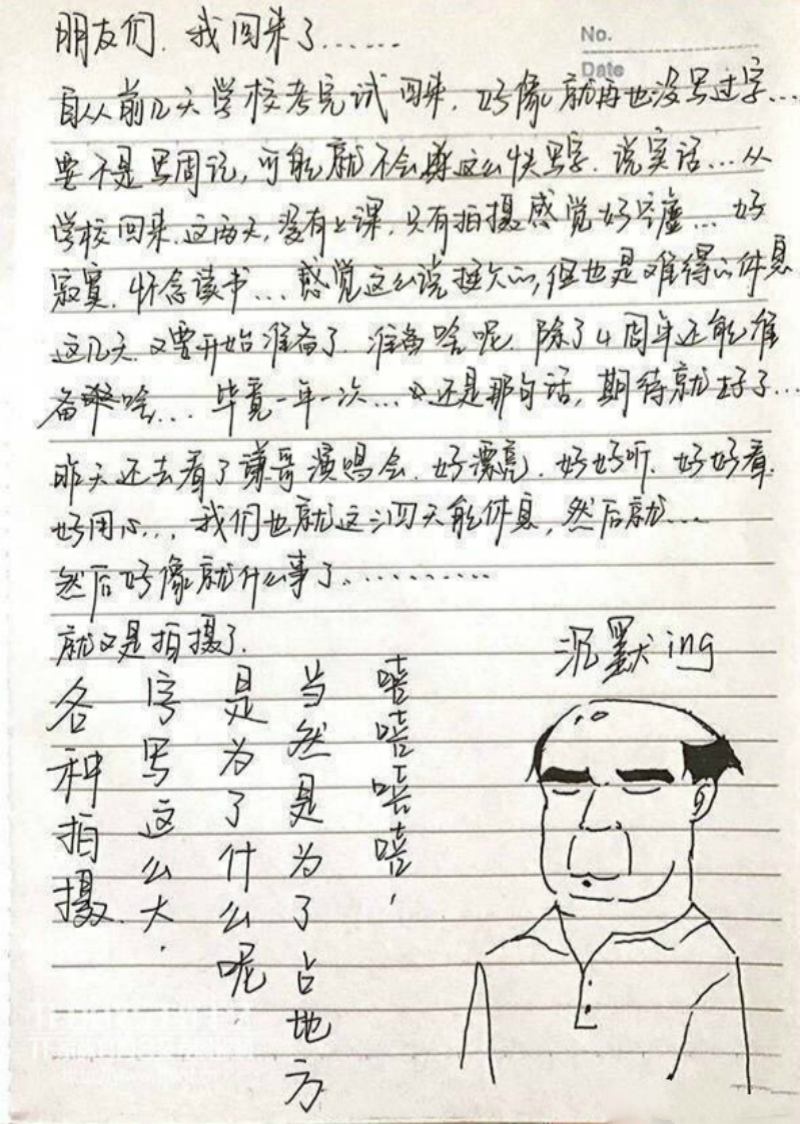 No.
Date
朋友们.我回来了......
自从前几天学校考完试回来.好像就再也没写过字...
要不是写周记,可能就不会 这么快写字.说实话...从
学校回来.这两天,没有上课.只有拍摄感觉好空虚...好
寂寞.怀念读书...感觉这么说挺欠的,但也是难得的休息
这几天.又要开始准备了.准备啥呢.除了4周年还能准
备 啥...毕竟一年一次... 还是那句话,期待就好了...
昨天还去看了谦哥演唱会.好漂亮.好好听.好好看.
好用心...我们也就这三四天能休息,然后就...
然后好像就什么事了..........
就又是拍摄了.
各种拍摄.
字写这么大.
是为了什么呢
当然是为了占地方
嘻嘻嘻嘻,
沉默ing